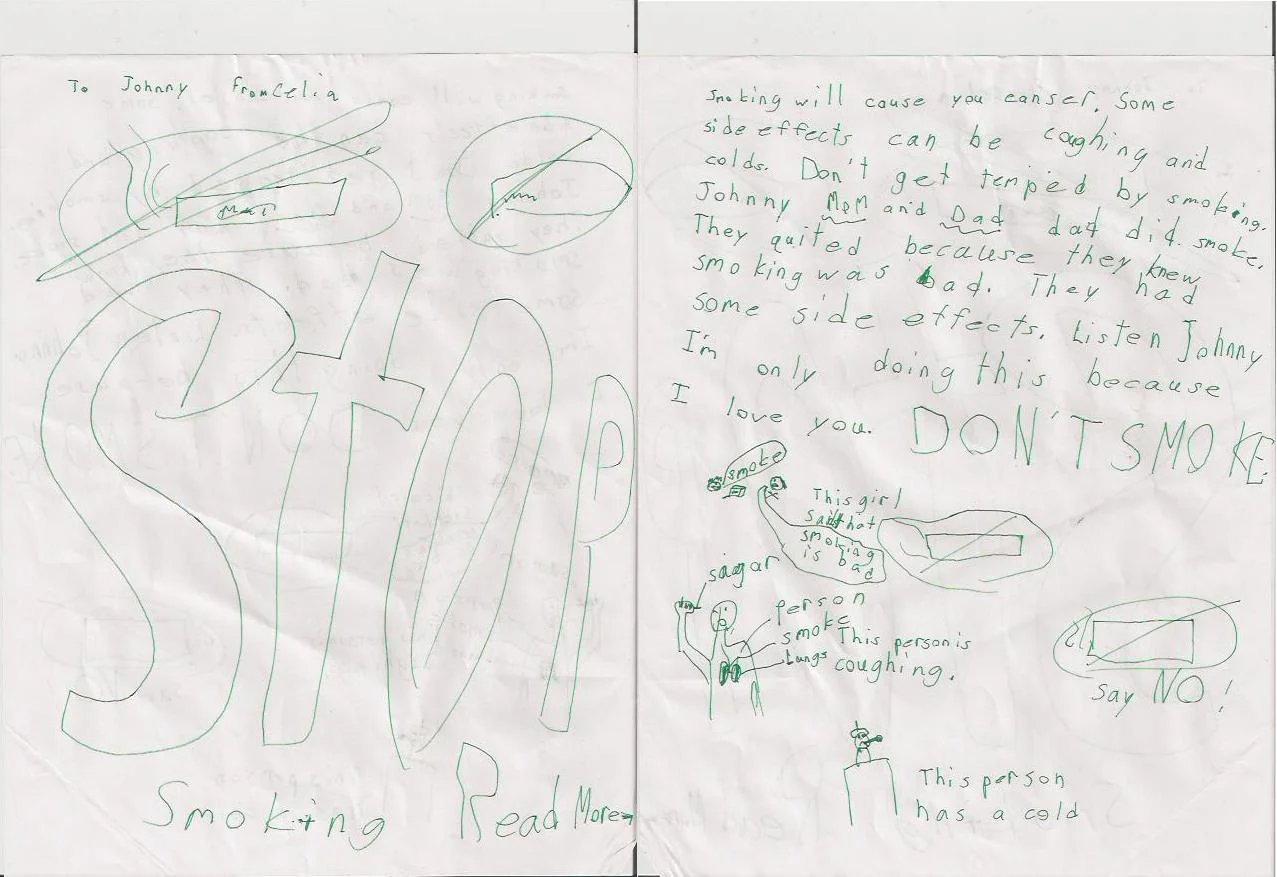 To Johnny From Celia
StOP
Smoking
Read More
Smoking will cause you canser. Some
side effects can be coughing and
colds. Don't get temped by smoking.
Johnny Mom and Dad dad did smoke.
They quited because they knew
smoking was bad. They had
some side effects. Listen Johnny
I'm only doing this because
I love you. DON'T SMOKE
smoke
This girl
said that
smoking
is bad
sagar
person
smoke
Lungs
This person is
coughing.
say NO!
This person
has a cold